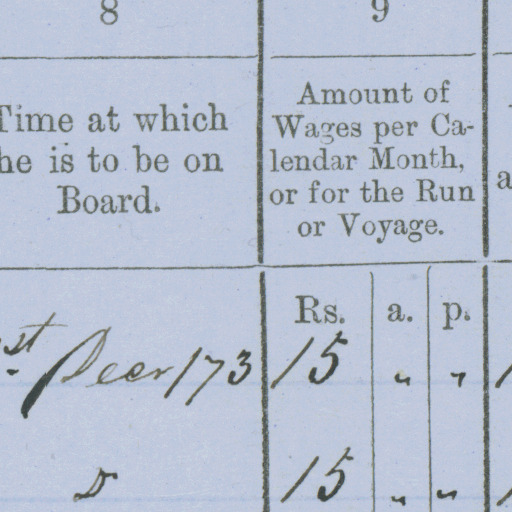 8
9
Time at which
he is to be on
Board.
Amount of
Wages per Ca-
lendar Month,
or for the Run
or Voyage.
a
Rs. a. p.
st 173 15 " "
D 15 " "